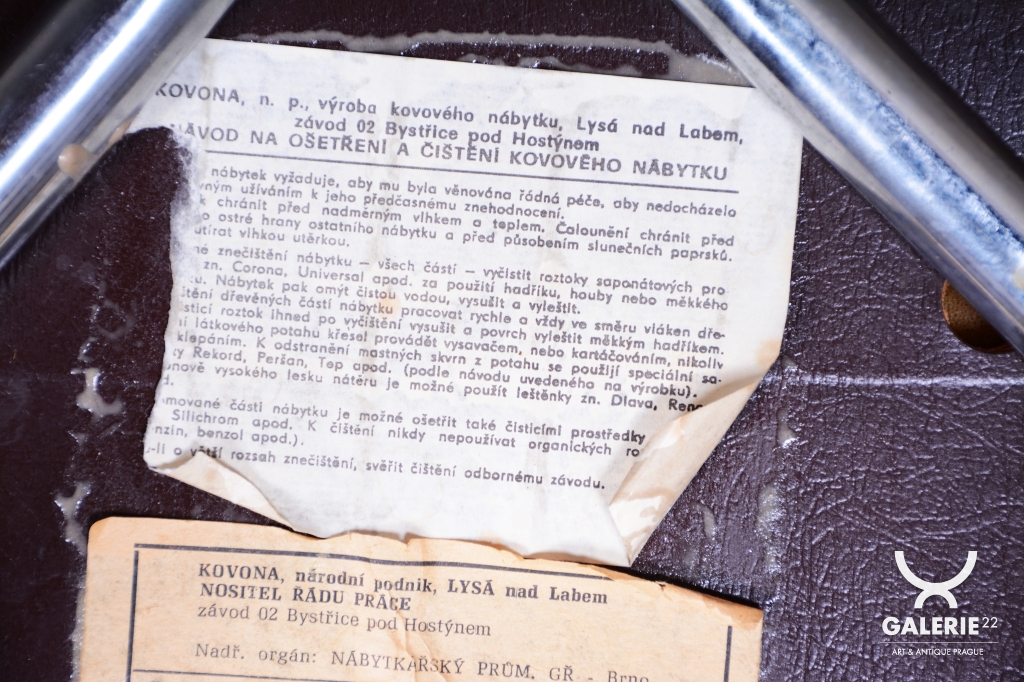 KOVONA, n. p., výroba kovového nábytku, Lysá nad Labem,
závod 02 Bystřice pod Hostýnem
NÁVOD NA OŠETŘENÍ A ČIŠTĚNÍ KOVOVÉHO NÁBYTKU
nábytek vyžaduje, aby mu byla věnována řádná péče, aby nedocházelo
užíváním k jeho předčasnému znehodnocení.
chránit před nadměrným vlhkem a teplem. Čalounění chránit před
ostré hrany ostatního nábytku a před působením slunečních paprsků.
utírat vlhkou utěrkou.
znečištění nábytku — všech částí — vyčistit roztoky saponátových pro-
zn. Corona, Universal apod. za použití hadříku, houby nebo měkkého
Nábytek pak omýt čistou vodou, vysušit a vyleštit.
dřevěných částí nábytku pracovat rychle a vždy ve směru vláken dře-
roztok ihned po vyčištění vysušit a povrch vyleštit měkkým hadříkem.
látkového potahu křesel provádět vysavačem, nebo kartáčováním, nikoliv
klepáním. K odstranění mastných skvrn z potahu se použijí speciální sa-
Rekord, Peržan, Tep apod. (podle návodu uvedeného na výrobku).
vysokého lesku nátěru je možné použít leštěnky zn. Dlava,
části nábytku je možné ošetřit také čisticími prostředky
Silichrom apod. K čištění nikdy nepoužívat organických
benzol apod.).
o větší rozsah znečištění, svěřit čištění odbornému závodu.
KOVONA, národní podnik, LYSÁ nad Labem
NOSITEL ŘÁDU PRÁCE
závod 02 Bystřice pod Hostýnem
Nadř. orgán: NÁBYTKÁŘSKÝ PRŮM. GŘ - Brno
GALERIE 22
ART & ANTIQUE PRAGUE